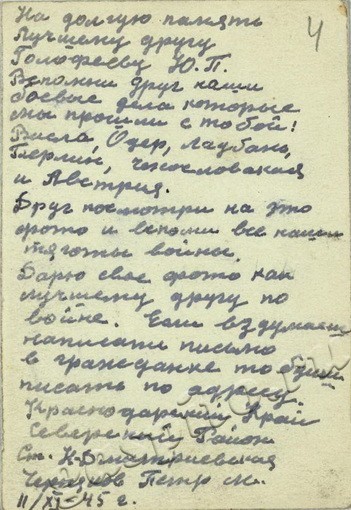 На долгую память
Лучшему другу
Голофееву Ю.П.
Вспомни друг наши
боевые дела которые
мы прошли с тобой!
Висла, Одер, Лаубань,
Берлин, чехословакия
и Австрия.
Друг посмотри на это
фото и вспомни все наши
тяготы войны.
Дарю свое фото как
лучшему другу по
войне. Если вздумаешь
написать письмо
в гражданке то
писать по адресу.
Краснодарский Край
Северский Район
Ст.
Петр М.
11/XI-45 г.
4